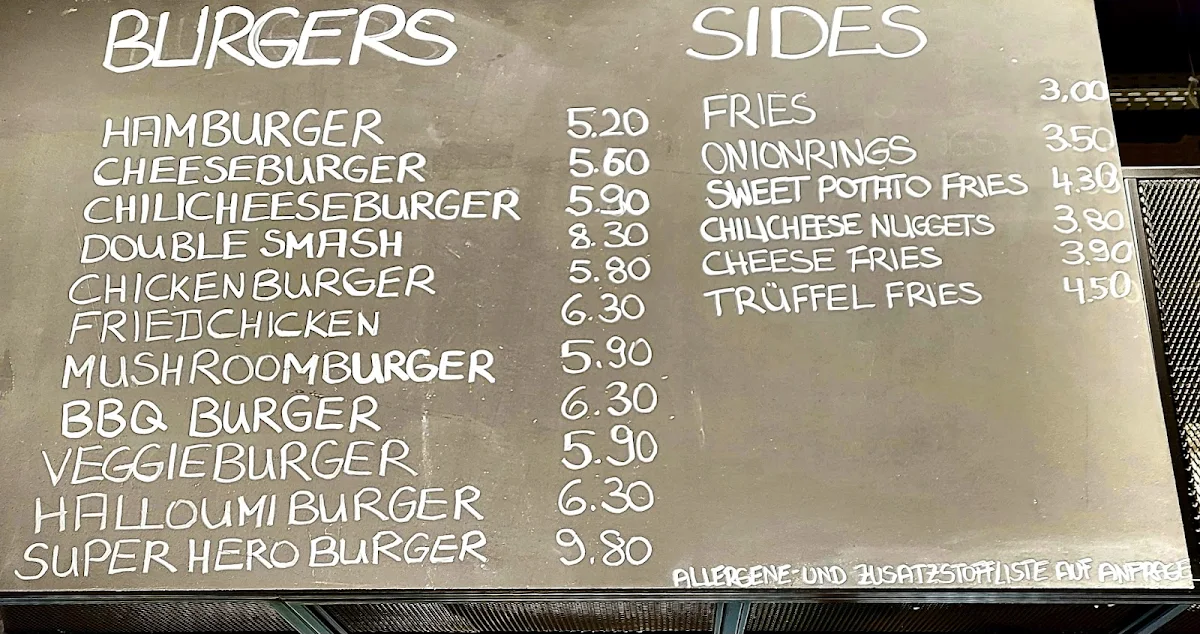 BURGERS
HAMBURGER 5.20
CHEESEBURGER 5.60
CHILICHEESEBURGER 5.90
DOUBLE SMASH 8.30
CHICKEN BURGER 5.80
FRIEDCHICKEN 6.30
MUSHROOMBURGER 5.90
BBQ BURGER 6.30
VEGGIEBURGER 5.90
HALLOUMI BURGER 6.30
SUPER HERO BURGER 9.80
SIDES
FRIES 3,00
ONIONRINGS 3.50
SWEET POTATO FRIES 4.30
CHILICHEESE NUGGETS 3.80
CHEESE FRIES 3.90
TRÜFFEL FRIES 4.50
ALLERGENE- UND ZUSATZSTOFFLISTE AUF ANFRAGE